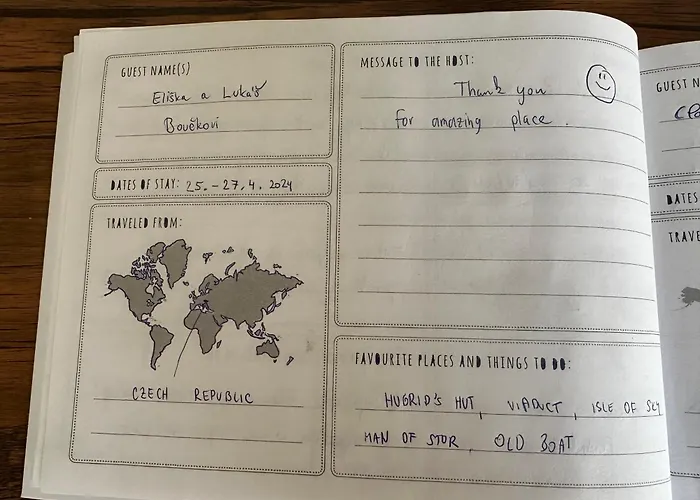 GUEST NAME(S)
Eliška a Lukáš
Boučkovi
DATES OF STAY: 25.-27.4. 2024
TRAVELED FROM:
CZECH REPUBLIC
MESSAGE TO THE HOST:
Thank you
for amazing place.
FAVOURITE PLACES AND THINGS TO DO:
HUGRID'S HUT, VIADUCT, ISLE OF SKY
MAN OF STOR, OLD BOAT
GUEST N
DATES
TRAVE